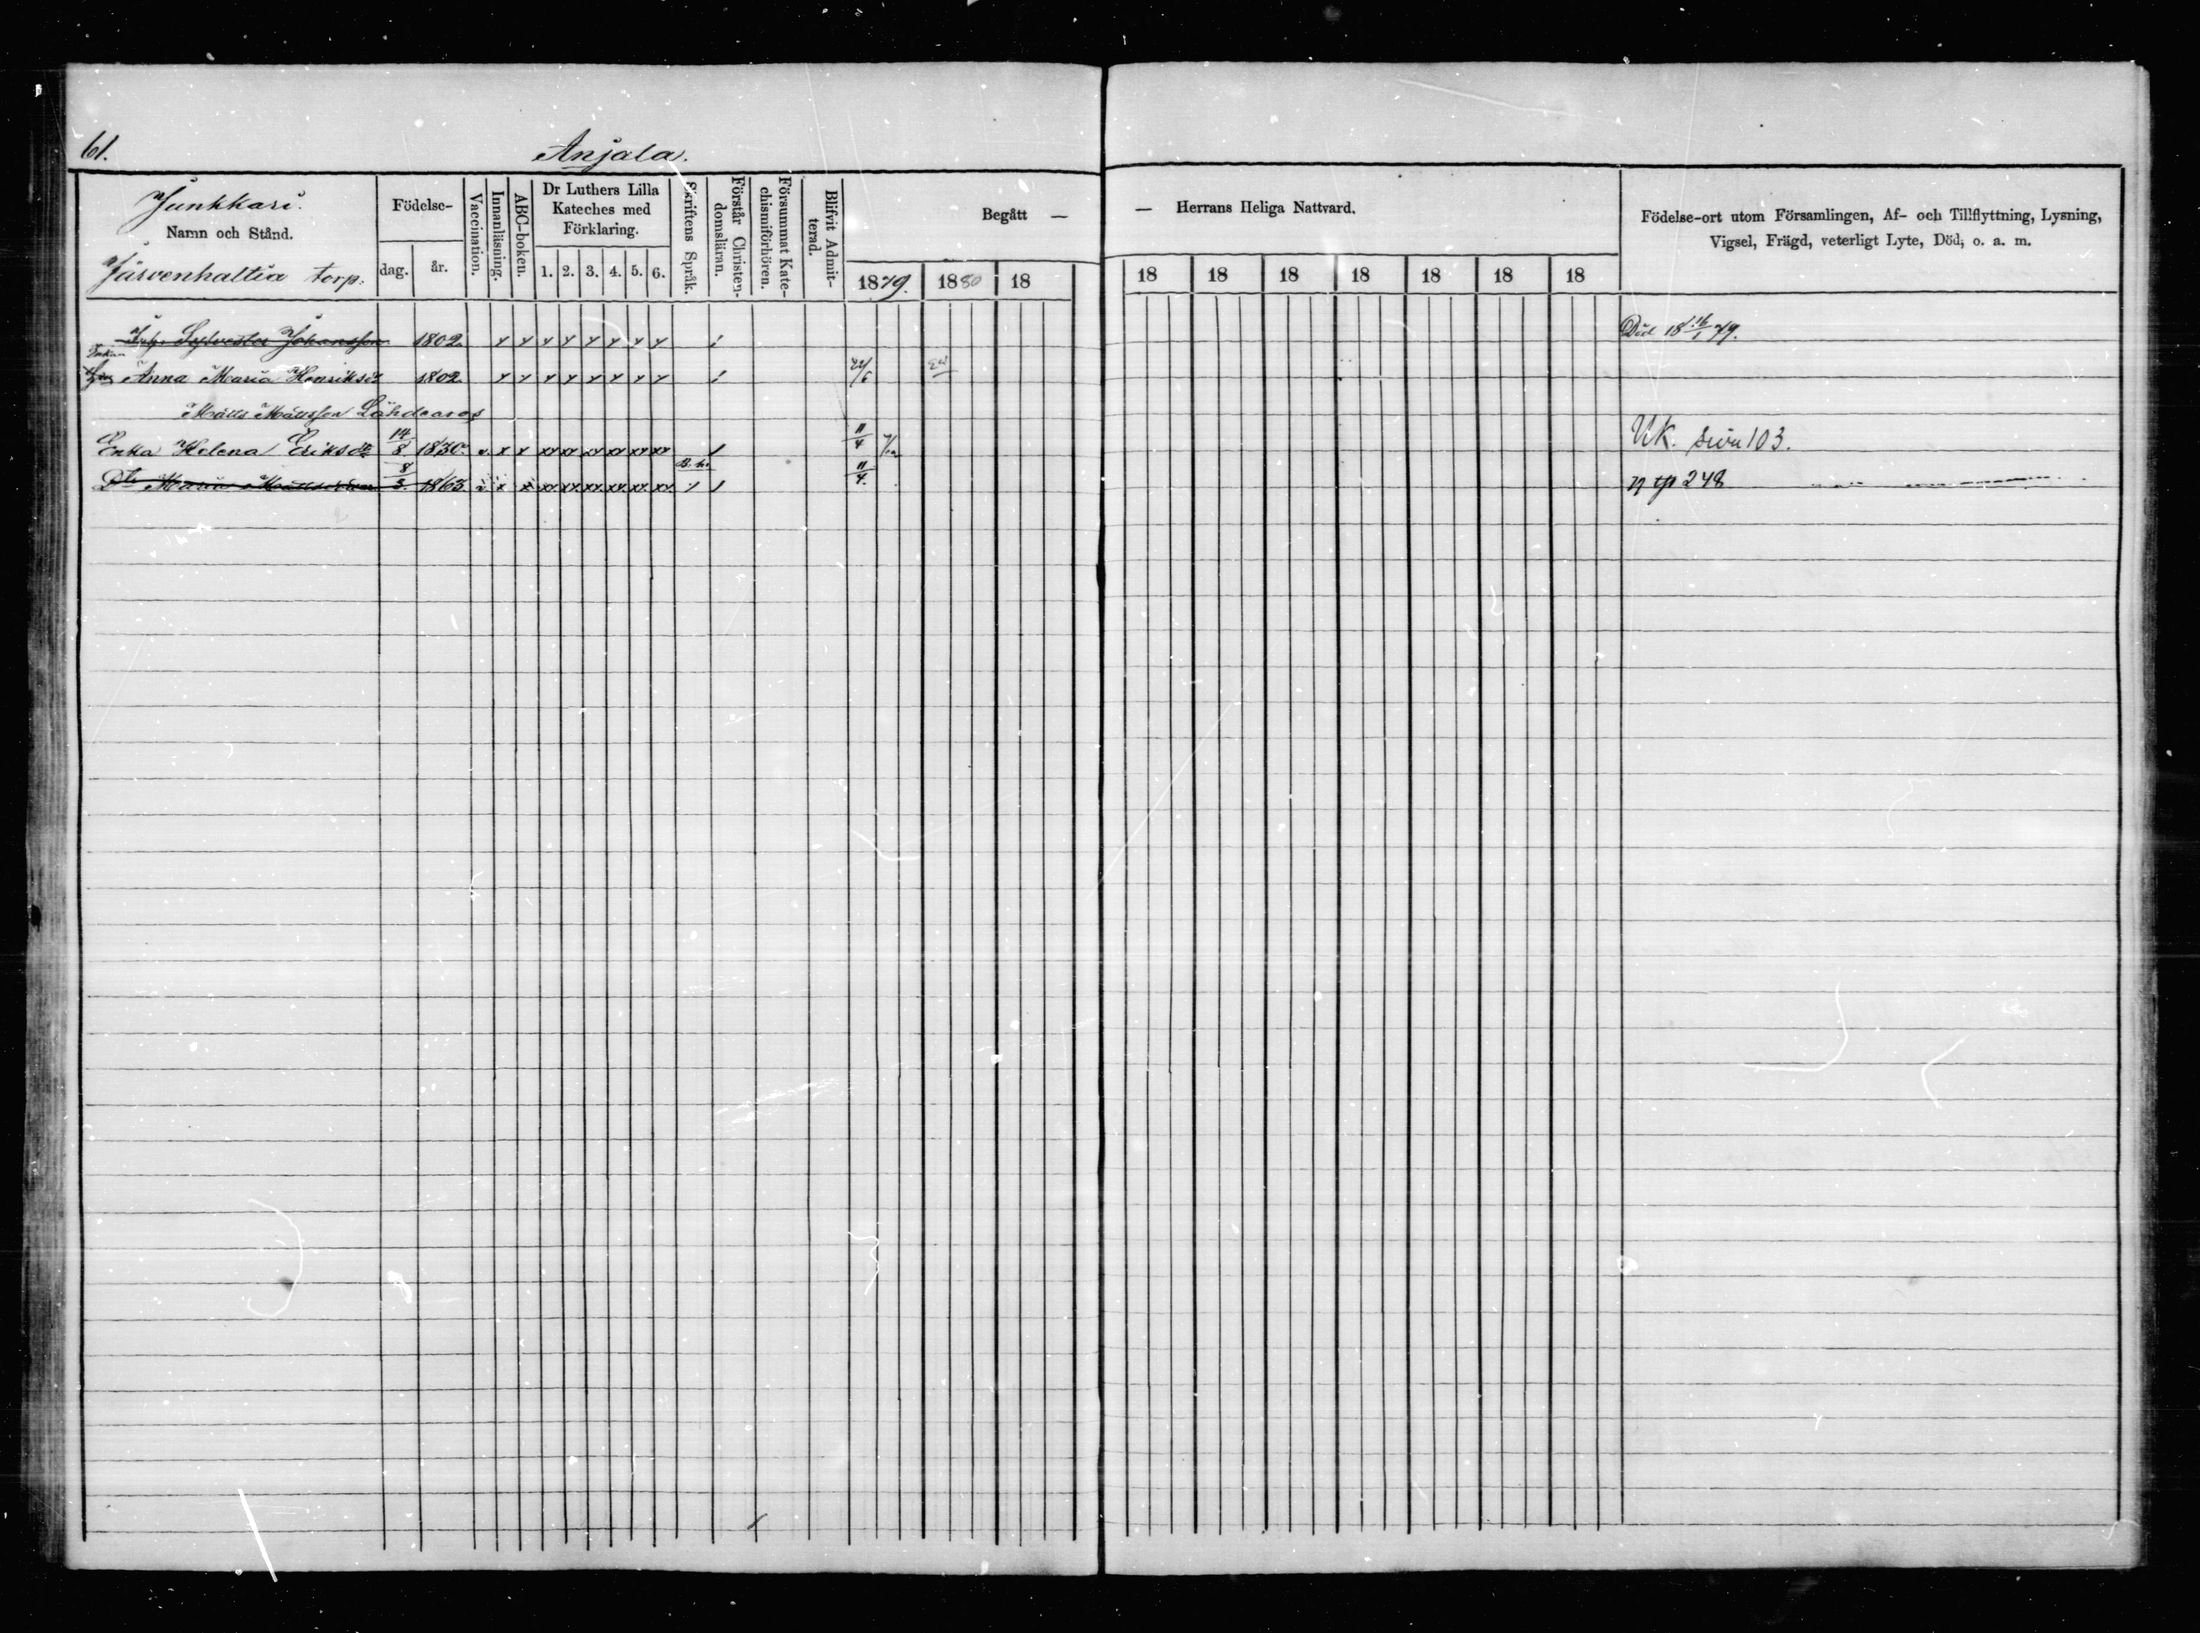 61.
Anjala.
Junkkari.
Namn och Stånd.
Järvenhaltia torp.
Födelse-
dag.
år.
Vaccination.
Innanläsning.
ABC-boken.
Dr Luthers Lilla
Kateches med
Förklaring.
1. 2. 3. 4. 5. 6.
Skriftens Språk.
Förstår Christen-
domsläran.
Försummat Kate-
chismiförhören.
Blifvit Admit-
terad.
Begått —
1879. 1880 18
— Herrans Heliga Nattvard.
18 18 18 18 18 18 18
Födelse-ort utom Församlingen, Af- och Tillflyttning, Lysning,
Vigsel, Frägd, veterligt Lyte, Död, o. a. m.
Sylvester Johansson 1802. Död 18 16/1 79.
Enkan
Anna Maria Henriksdr 1802.
Matts Mattsson Lähdearos
Enka Helena Eriksdr 14/8 1830. 11/4 UK. sivu 103.
Dtr Maria Mattsdotter 8/3 1863 11/4 n tp 248